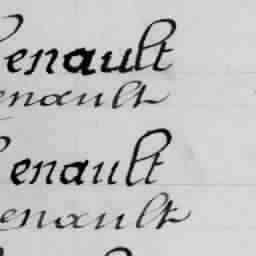 enault
enault
enault
enault